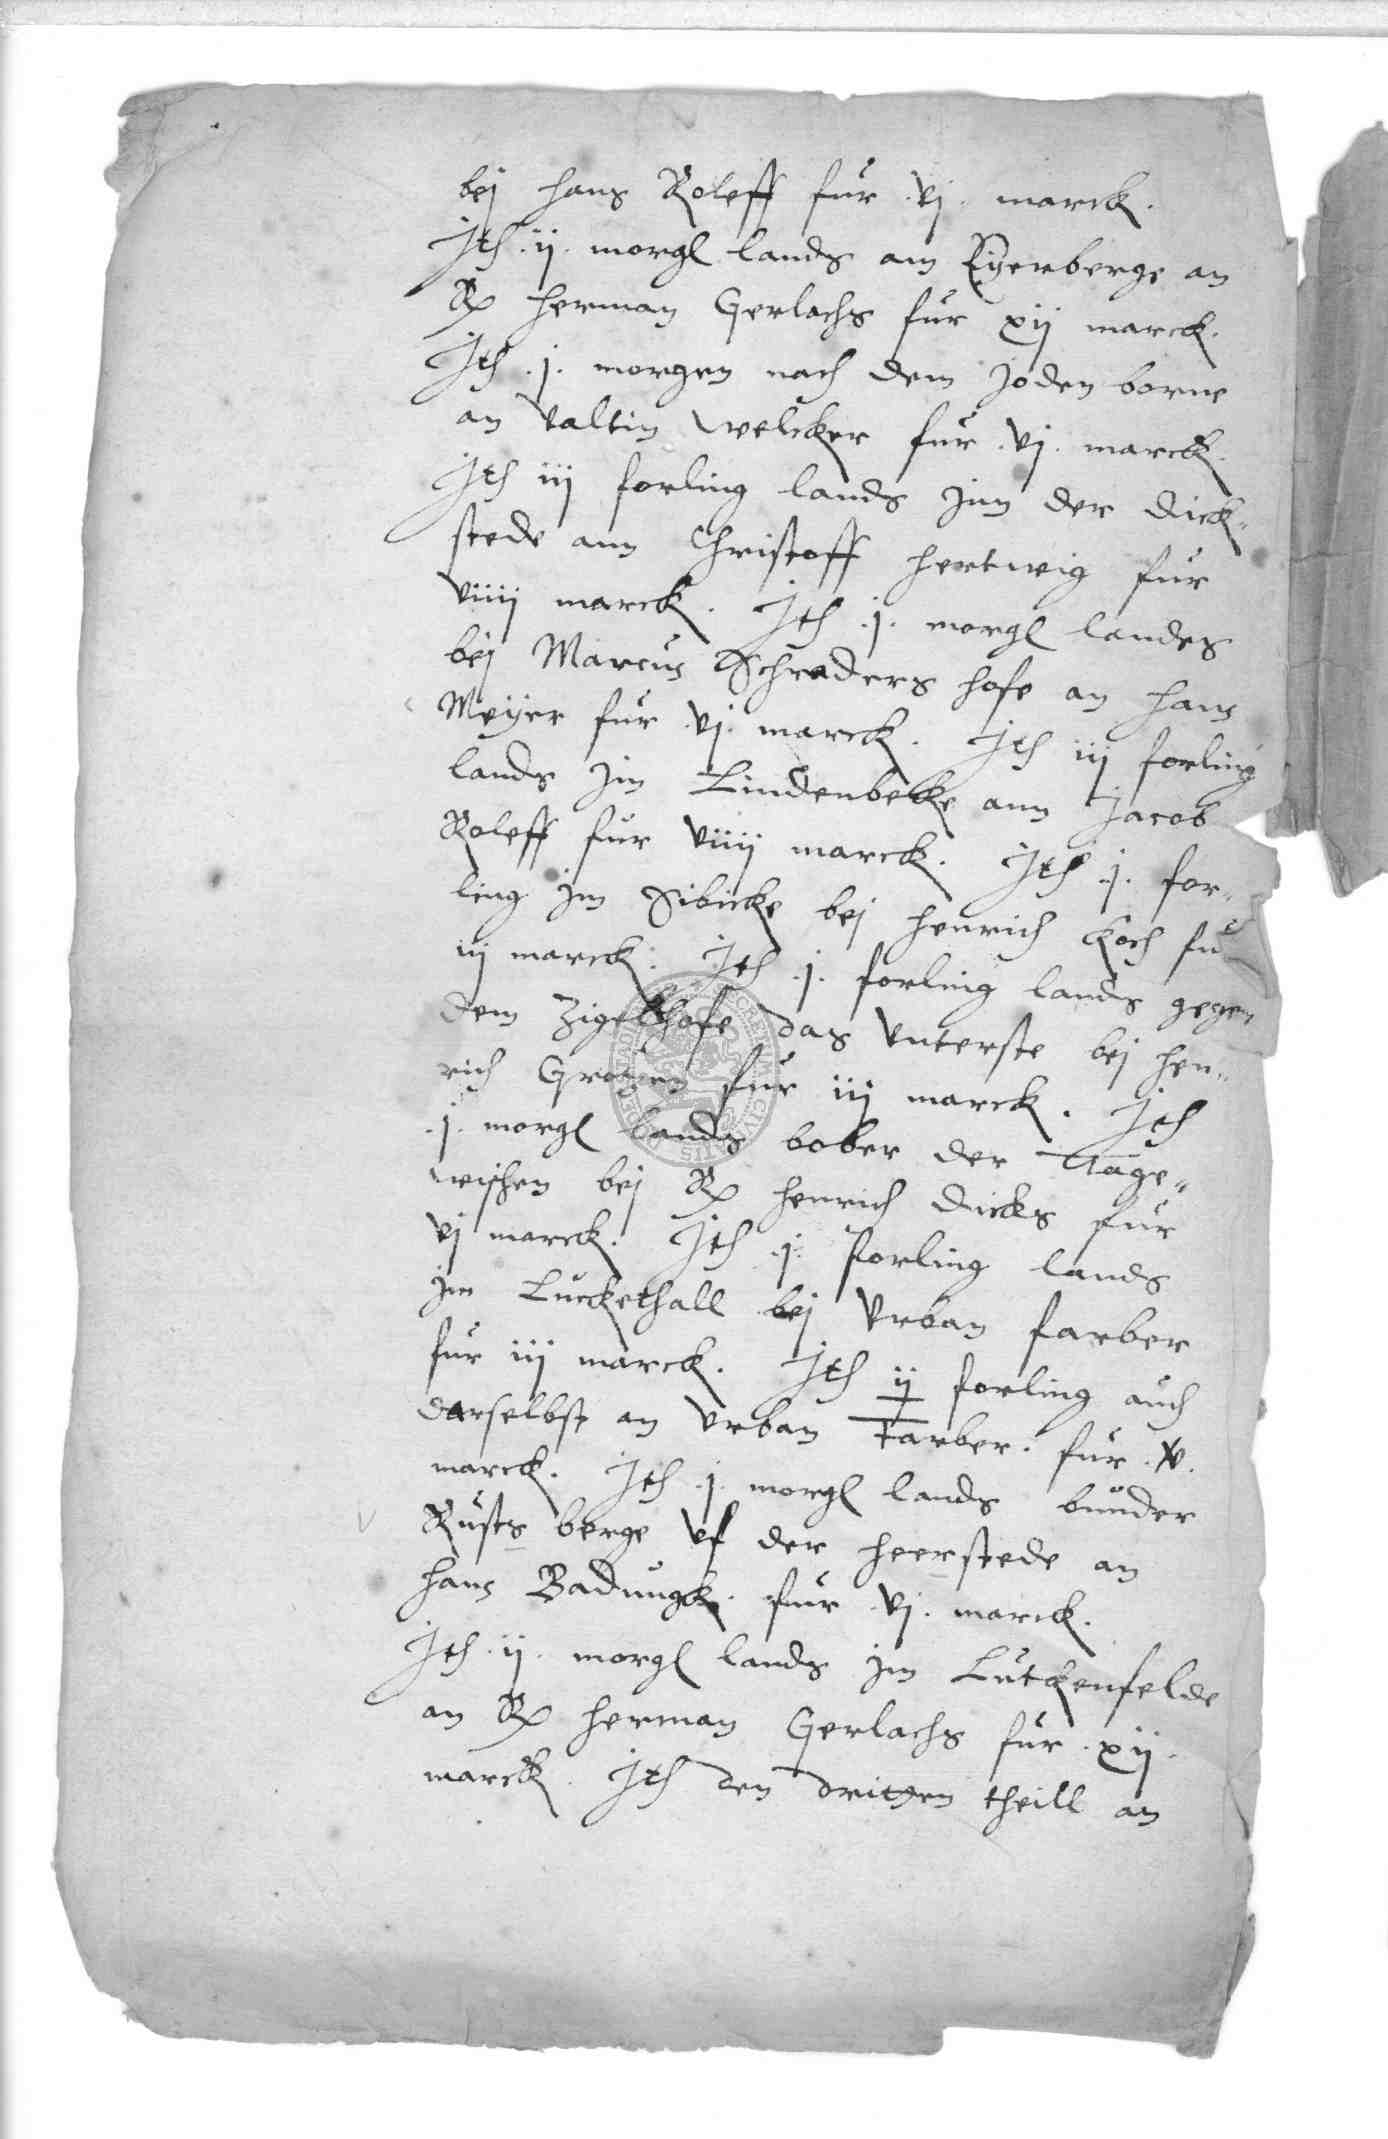 bej hans Roleff fur .vj. marck.
Jth .ij. morgl lands am Eyerberge an
Er herman Gerlachs fur xij marck.
Jth .j. morgen nach dem Joden borne
an Valtin Welcker fur .vj. marck.
Jth iij forling lands jnn der dick„
stede ann Christoff hertwig fur
viiij marck. Jth .j. morgl landes
bej Marcus Schraders hofe an hans
Meyer fur .vj. marck. Jth iij forling
lands jm Lindenbecke ann Jacob
Roleff fur viiij marck. Jth .j. for„
ling jm Sibicke bej henrich Koch fur
iij marck. Jth .j. forling lands gegen
dem Zigelhofe das vnterste bej hen„
rich Grossen fur iij marck. Jth
.j. morgl lands bober der
wischen bej Er henrich dicks fur
vj marck. Jth .j. forling lands
jm Luckethall bej Vrban farber
fur iij marck. Jth ij forling auch
darselbst an Vrban Farber. fur .v.
marck. Jth .j. morgl lands bunder
Rusts berge vf der heerstede an
hans Badungk. fur .vj. marck.
Jth .ij. morgl lands jm Lutkenfelde
an Er herman Gerlachs fur .xij.
marck. Jth den dritten theill an